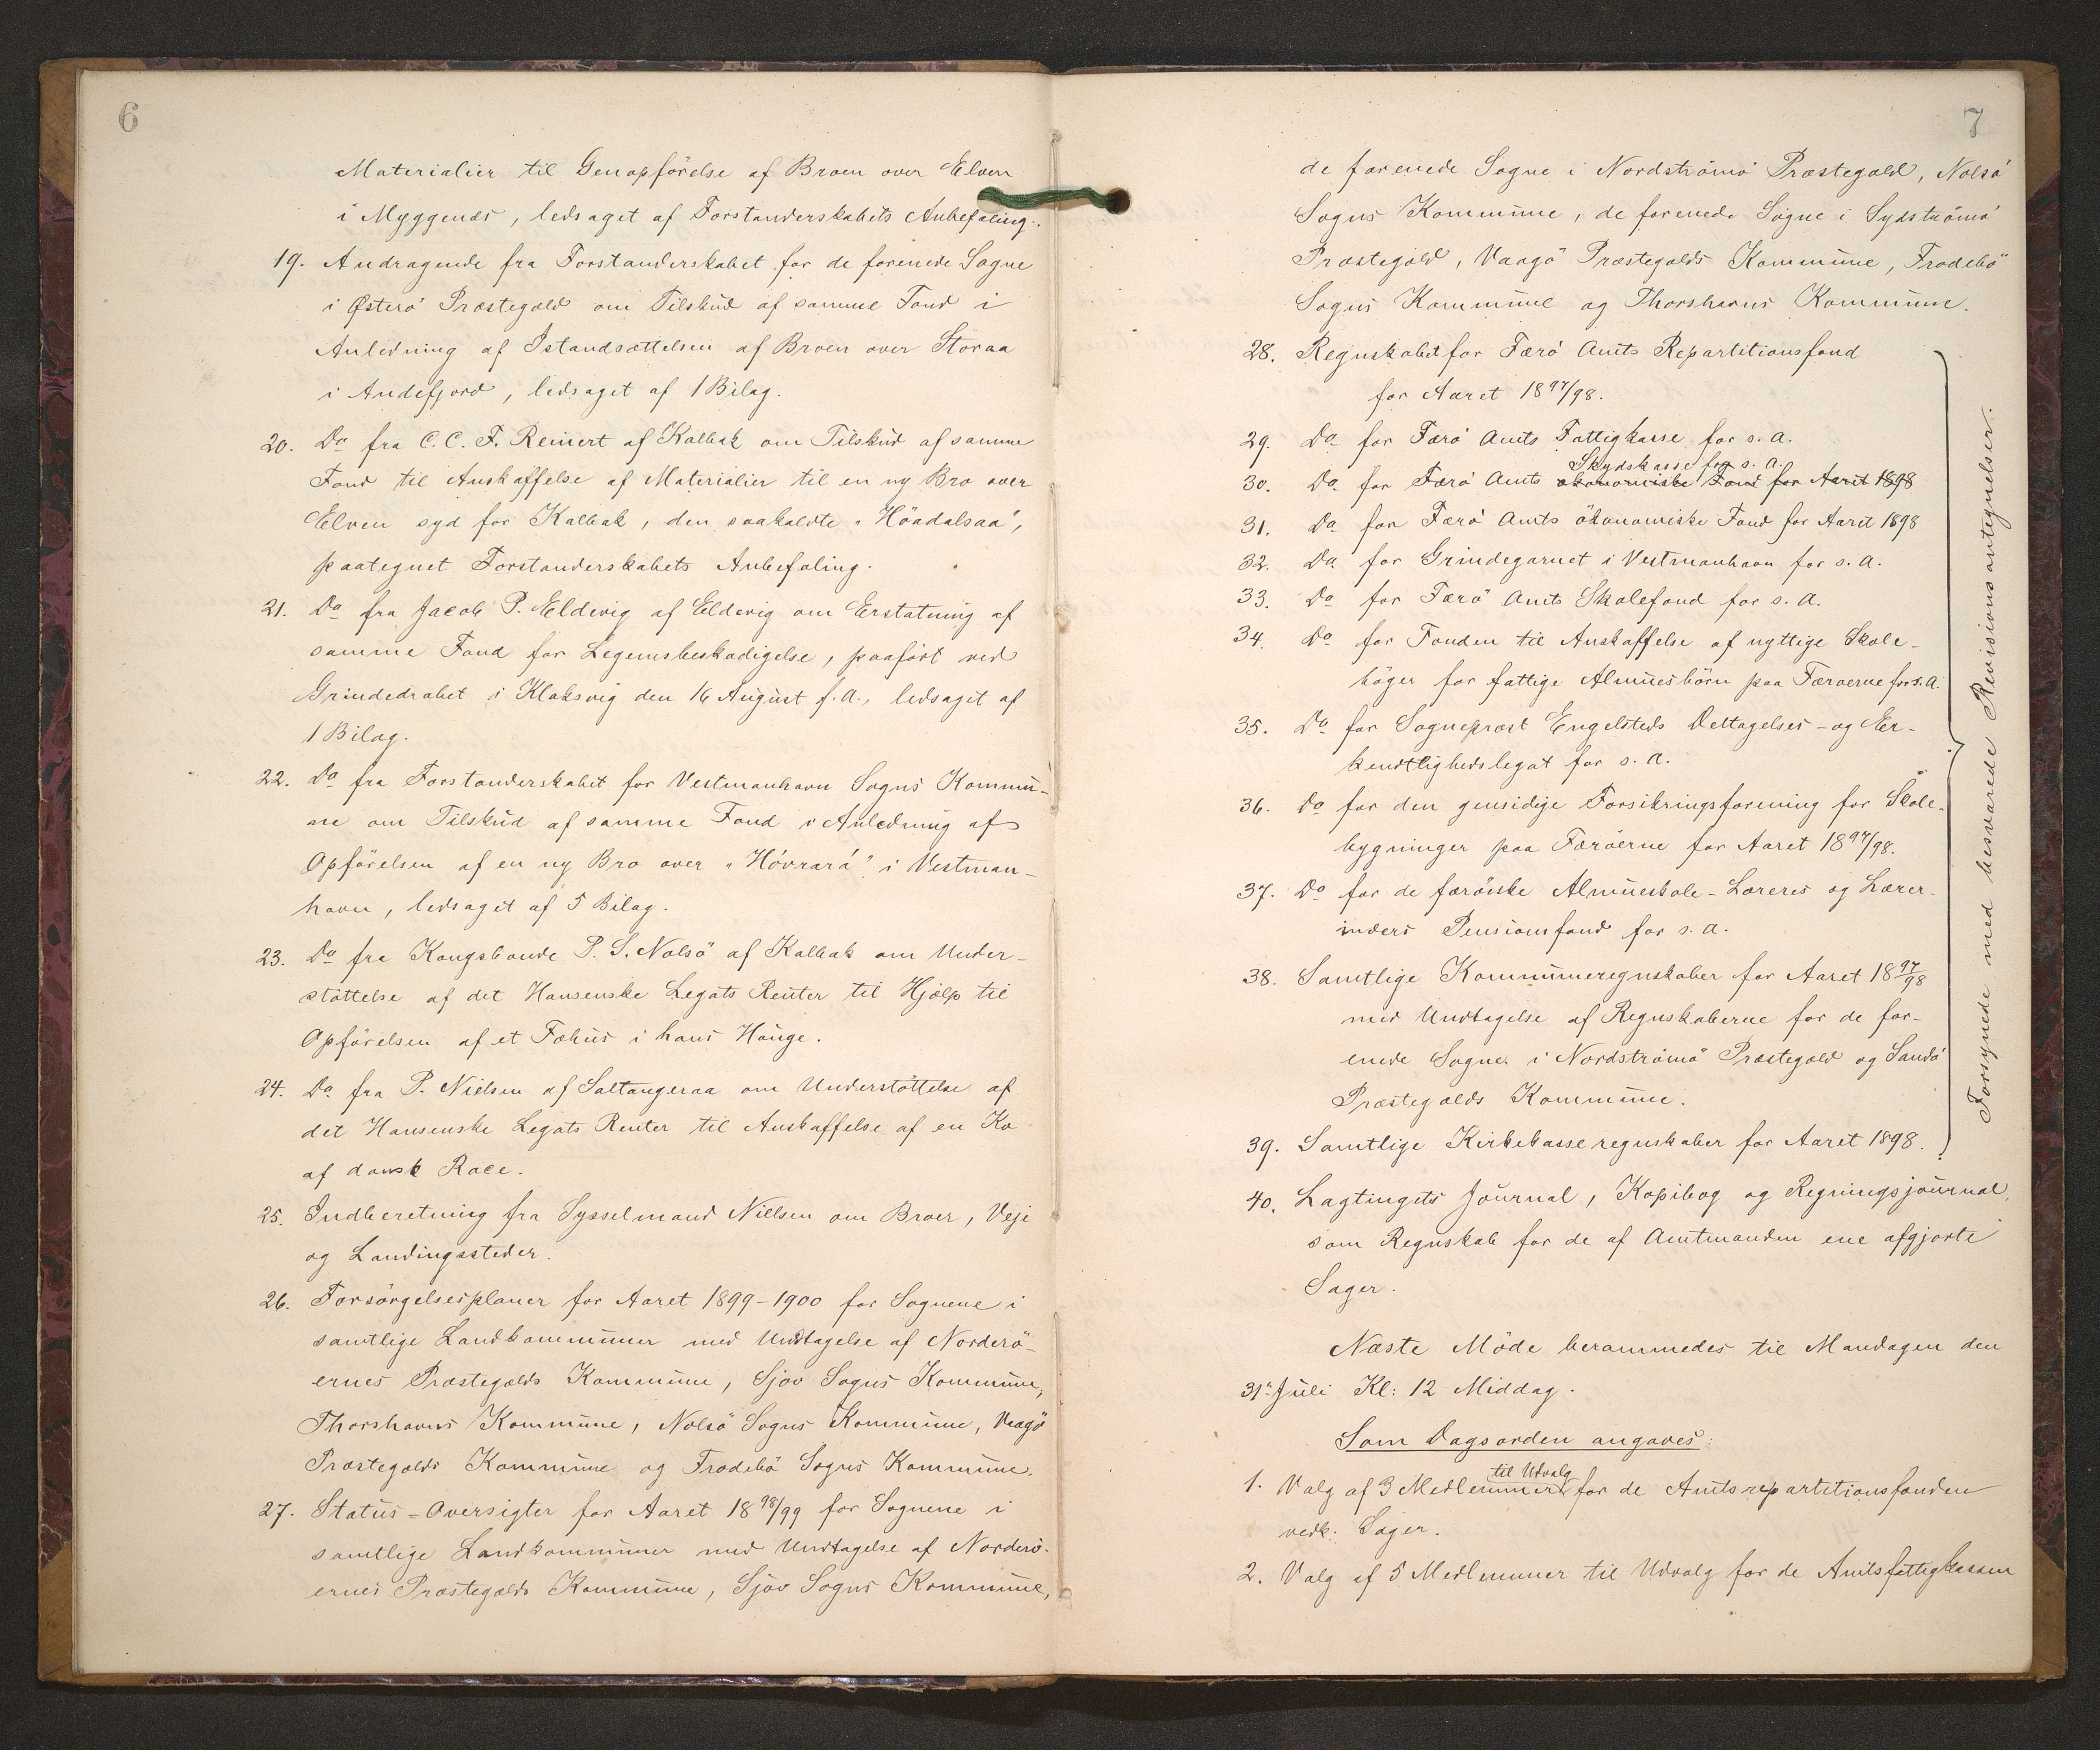 6
Materialier til Genopförelse af Broen over Elven
i Myggenæs, ledsaget af Forstanderskabets Anbefaling.
19. Andragende fra Forstanderskabet for de forenede Sogne
i Østerö Præstegæld om Tilskud af samme Fond i
Anledning af Istandsættelsen af Broen over Storaa
i Andefjord, ledsaget af 1 Bilag.
20. Do fra C. C. F. Reinert af Kalbak om Tilskud af samme
Fond til Anskaffelse af Materialier til en ny Bro over
Elven syd for Kalbak, den saakaldte "Höadalsaa",
paategnet Forstanderskabets Anbefaling.
21. Do fra Jacob P. Eldevig af Eldevig om Erstatning af
samme Fond for Legemsbeskadigelse, paaført ved
Grindedrabet i Klaksvig den 16 August f. A., ledsaget af
1 Bilag.
22. Do fra Forstanderskabet for Vestmanhavn Sogns Kommu-
ne om Tilskud af samme Fond i Anledning af
Opförelsen af en ny Bro over "Hóvrará" i Vestman-
havn, ledsaget af 5 Bilag.
23. Do fra Kongsbonde P. S. Nolsö af Kalbak om Under-
stöttelse af det Hansenske Legats Renter til Hjælp til
Opförelsen af et Fæhus i hans Hauge.
24. Do fra P. Nielsen af Saltangeraa om Understöttelse af
det Hansenske Legats Renter til Anskaffelse af en Ko
af dansk Race.
25. Indberetning fra Sysselmand Nielsen om Broer, Veje
og Landingssteder.
26. Forsörgelsesplaner for Aaret 1899-1900 for Sognene i
samtlige Landkommuner med Undtagelse af Norderö-
ernes Præstegælds Kommune, Sjov Sogns Kommune,
Thorshavns Kommune, Nolsö Sogns Kommune, Vaagö
Præstegælds Kommune og Frodebö Sogns Kommune.
27. Status-Oversigter for Aaret 1898/99 for Sognene i
samtlige Landkommuner med Undtagelse af Norderö-
ernes Præstegælds Kommune, Sjov Sogns Kommune,
7
de forenede Sogne i Nordströmö Præstegæld, Nolsö
Sogns Kommune, de forenede Sogne i Sydströmö
Præstegæld, Vaagö Præstegælds Kommune, Frodebö
Sogns Kommune og Thorshavns Kommune.
28. Regnskabet for Færö Amts Repartitionsfond
for Aaret 1897/98.
29. Do for Færö Amts Fattigkasse for s. A.
Skydskasse for s. A.
30. Do for Færö Amts ökonomiske Fond for Aaret 1898
31. Do for Færö Amts ökonomiske Fond for Aaret 1898
32. Do for Grindegarnet i Vestmanhavn for s. A.
33. Do for Færö Amts Skolefond for s. A.
34. Do for Fonden til Anskaffelse af nyttige Skole-
böger for fattige Almuesbörn paa Færöerne for s. A.
35. Do for Sognepræst Engelsteds Deltagelses- og Er-
kendtlighedslegat for s. A.
36. Do for den gensidige Forsikringsforening for Skole-
bygninger paa Færöerne for Aaret 1897/98.
37. Do for de færöiske Almueskole-Læreres og Lærer-
inders Pensionsfond for s. A.
38. Samtlige Kommuneregnskaber for Aaret 1897/98
med Undtagelse af Regnskaberne for de for-
enede Sogne i Nordströmö Præstegæld og Sandö
Præstegælds Kommune.
39. Samtlige Kirkekasseregnskaber for Aaret 1898.
Forsynede med besvarede Revisionsantegnelser.
40. Lagtingets Journal, Kopibog og Regningsjournal,
som Regnskab for de af Amtmanden ene afgjorte
Sager.
Næste Möde berammedes til Mandagen den
31te Juli Kl: 12 Middag.
Som Dagsorden angaves:
til Udvalg
1. Valg af 3 Medlemmer for de Amtsrepartitionsfonden
vedk. Sager.
2. Valg af 5 Medlemmer til Udvalg for de Amtsfattigkassen